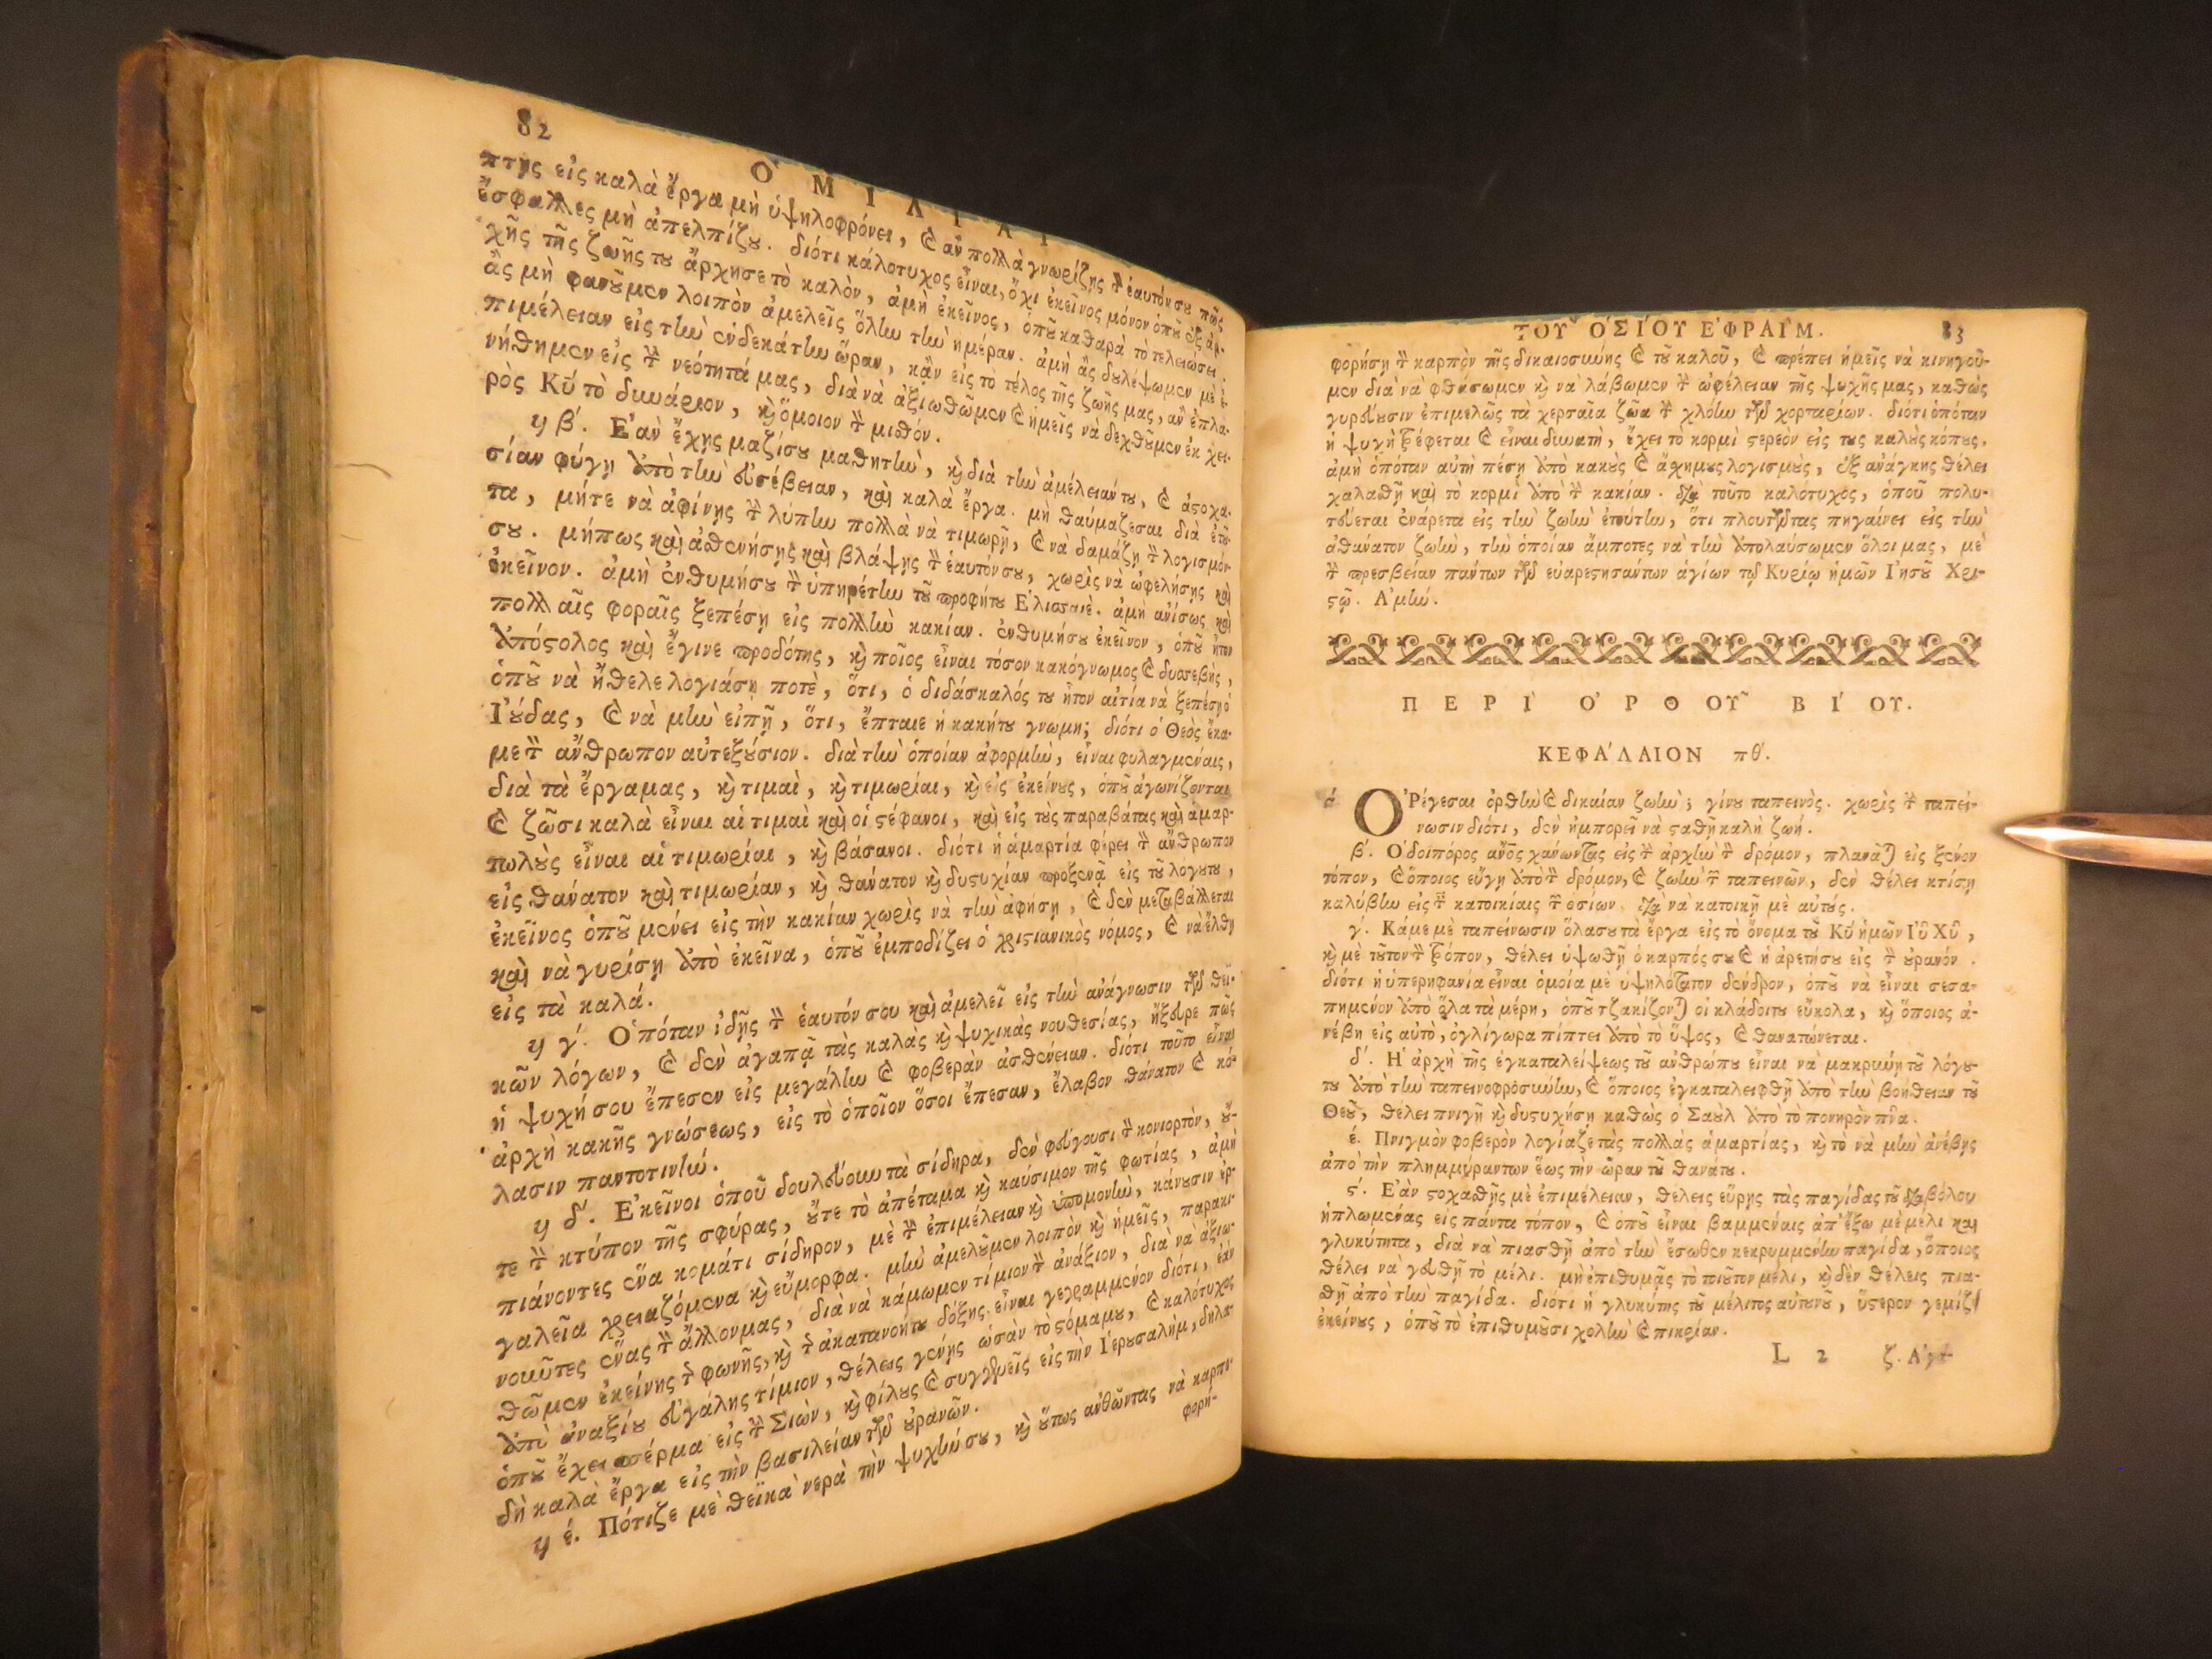 82
Ο῾ΜΙΛΙΑΙ
πτῃς εἰς καλὰ ἔργα μὴ ὑψηλοφρόνει, καὶ ἂν πολλὰ γνωρίζῃς τὸν ἑαυτόν σου πῶς
ἔσφαλλες μὴ ἀπελπίζου. διότι καλότυχος εἶναι, ὄχι ἐκεῖνος μόνον ὁποῦ ἐξ ἀρ-
χῆς τῆς ζωῆς του ἄρχησε τὸ καλὸν, ἀμὴ ἐκεῖνος, ὁποῦ καθαρὰ τὸ τελειώσει.
ἂς μὴ φανοῦμεν λοιπὸν ἀμελεῖς ὅλην τὴν ἡμέραν. ἀμὴ ἂς δουλέψωμεν μὲ ἐ-
πιμέλειαν εἰς τὴν ἑνδεκάτην ὥραν, κᾂν εἰς τὸ τέλος τῆς ζωῆς μας, ἂν ἐπλα-
νήθημεν εἰς τὴν νεότητά μας, διὰ νὰ ἀξιωθῶμεν καὶ ἡμεῖς νὰ δεχθοῦμεν ἐκ χει-
ρὸς Κυ῀ τὸ δηνάριον, καὶ ὅμοιον τὸν μισθόν.
ϟ β΄. Ε᾿ὰν ἔχῃς μαζίσου μαθητὴν, καὶ διὰ τὴν ἀμέλειάν του, καὶ ἀστοχα-
σίαν φύγῃ ἀπὸ τὴν εὐσέβειαν, καὶ καλὰ ἔργα. μὴ θαύμαζεσαι διὰ ἐτοῦ-
τα, μήτε νὰ ἀφίνῃς τὴν λύπην πολλὰ νὰ τιμωρῇ, καὶ νὰ δαμάζῃ τὸν λογισμόν
σου. μήπως καὶ ἀσθενήσῃς καὶ βλάψῃς τὸν ἑαυτόν σου, χωρὶς νὰ ὠφελήσῃς καὶ
ἐκεῖνον. ἀμὴ ἐνθυμήσου τὸν ὑπηρέτην τοῦ προφήτου Ε᾿λισσαιέ. ἀμὴ ἀνίσως καὶ
πολλαῖς φοραῖς ξεπέσῃ εἰς πολλὴν κακίαν. ἐνθυμήσου ἐκεῖνον, ὁποῦ ἦτον
ἀπόστολος καὶ ἔγινε προδότης, καὶ ποῖος εἶναι τόσον κακόγνωμος καὶ δυσσεβὴς,
ὁποῦ νὰ ἤθελε λογιάσῃ ποτὲ, ὅτι, ὁ διδάσκαλός του ἦτον αἰτία νὰ ξεπέσῃ ὁ
Ι᾿ούδας, καὶ νὰ μὴν εἰπῇ, ὅτι, ἔπταιε ἡ κακή του γνωμη; διότι ὁ Θεὸς ἔκα-
με τὸν ἄνθρωπον αὐτεξούσιον. διὰ τὴν ὁποίαν ἀφορμὴν, εἶναι φυλαγμέναις,
διὰ τὰ ἔργαμας, καὶ τιμαὶ, καὶ τιμωρίαι, καὶ εἰς ἐκείνους, ὁποῦ ἀγωνίζονται
καὶ ζῶσι καλὰ εἶναι αἱ τιμαὶ καὶ οἱ στέφανοι, καὶ εἰς τοὺς παραβάτας καὶ ἁμαρ-
τωλοὺς εἶναι αἱ τιμωρίαι, καὶ βάσανοι. διότι ἡ ἁμαρτία φέρει τὸν ἄνθρωπον
εἰς θάνατον καὶ τιμωρίαν, καὶ θάνατον καὶ δυστυχίαν προξενᾷ εἰς τοῦ λόγουτου,
ἐκεῖνος ὁποῦ μένει εἰς τὴν κακίαν χωρὶς νὰ τὴν ἀφήσῃ, καὶ δὲν μεταβάλλεται
καὶ νὰ γυρίσῃ ἀπὸ ἐκεῖνα, ὁποῦ ἐμποδίζει ὁ χριστιανικὸς νόμος, καὶ νὰ ἔλθῃ
εἰς τὰ καλά.
ϟ γ΄. Ο῾πόταν ἰδῇς τὸν ἑαυτόν σου καὶ ἀμελεῖ εἰς τὴν ἀνάγνωσιν τῶν θεϊ-
κῶν λόγων, καὶ δὲν ἀγαπᾷ τὰς καλὰς καὶ ψυχικὰς νουθεσίας, ἤξευρε πῶς
ἡ ψυχή σου ἔπεσεν εἰς μεγάλην καὶ φοβερὰν ἀσθένειαν. διότι τοῦτο εἶναι
ἀρχὴ κακῆς γνώσεως, εἰς τὸ ὁποῖον ὅσοι ἔπεσαν, ἔλαβον θάνατον καὶ κό-
λασιν παντοτινήν.
ϟ δ΄. Ε᾿κεῖνοι ὁποῦ δουλεύουν τὰ σίδηρα, δὲν φεύγουσι τὸν κονιορτὸν, οὔ-
τε τὸν κτύπον τῆς σφύρας, οὔτε τὸ ἀπέταμα καὶ καύσιμον τῆς φωτίας, ἀμὴ
πιάνοντες ἕνα κομάτι σίδηρον, μὲ τὴν ἐπιμέλειαν καὶ ὑπομονὴν, κάνουσιν ἐρ-
γαλεῖα χρειαζόμενα καὶ εὔμορφα. μὴν ἀμελοῦμεν λοιπὸν καὶ ἡμεῖς, παρακι-
νοῦντες ἕνας τὸν ἄλλονμας, διὰ νὰ κάμωμεν τίμιον τὸν ἀνάξιον, διὰ νὰ ἀξιω-
θῶμεν ἐκείνης τῆς φωνῆς, καὶ τῆς ἀκατανοήτου δόξης. εἶναι γεγραμμένον διότι, ἐὰν
ἀπὸ ἀναξίου εὐγάλῃς τίμιον, θέλεις γένῃς ὡσὰν τὸ στόμαμου, καὶ καλότυχος
ὁποῦ ἔχει σπέρμα εἰς τὴν Σιὼν, καὶ φίλους καὶ συγγενεῖς εἰς τὴν Ι῾ερουσαλὴμ, δηλα-
δὴ καλὰ ἔργα εἰς τὴν βασιλείαν τῶν οὐρανῶν.
ϟ ε΄. Πότιζε μὲ θεϊκὰ νερὰ τὴν ψυχήν σου, καὶ οὕτως ἀνθῶντας νὰ καρπο-
φορή-
ΤΟΥ῀ Ο῾ΣΙ΄ΟΥ Ε᾿ΦΡΑΙ῍Μ. 83
φορήσῃ τὸν καρπὸν τῆς δικαιοσύνης καὶ τοῦ καλοῦ, καὶ πρέπει ἡμεῖς νὰ κινηγοῦ-
μεν διὰ νὰ φθάσωμεν καὶ νὰ λάβωμεν τὴν ὠφέλειαν τῆς ψυχῆς μας, καθὼς
γυρεύουσιν ἐπιμελῶς τὰ χερσαῖα ζῶα τὴν χλόην τῶν χορταρίων. διότι ὁπόταν
ἡ ψυχὴ τρέφεται καὶ εἶναι δυνατὴ, ἔχει τὸ κορμὶ στερεὸν εἰς τους καλοὺς κόπους.
ἀμὴ ὁπόταν αὐτὴ πέσῃ ἀπὸ κακοὺς καὶ ἄσχημους λογισμοὺς, ἐξ ἀνάγκης θέλει
χαλασθῇ καὶ τὸ κορμὶ ἀπὸ τὴν κακίαν. διὰ τοῦτο καλότυχος, ὁποῦ πολι-
τεύεται ἐνάρετα εἰς τὴν ζωὴν ἐτούτην, ὅτι πλουτῶντας πηγαίνει εἰς τὴν
ἀθάνατον ζωὴν, τὴν ὁποίαν ἄμποτες νὰ τὴν ἀπολαύσωμεν ὅλοι μας, μὲ
τὴν πρεσβείαν πάντων τῶν εὐαρεστησάντων ἁγίων τῷ Κυρίῳ ἡμῶν Ι᾿ησοῦ Χρι-
στῷ. Α᾿μήν.
ΠΕΡΙ` Ο᾿ΡΘΟΥ῀ ΒΙ΄ΟΥ.
ΚΕΦΑ΄ΛΑΙΟΝ πθ΄.
ά Ο᾿Ρέγεσαι ὀρθὴν καὶ δικαίαν ζωήν; γίνου ταπεινός. χωρὶς τὴν ταπεί-
νωσιν διότι, δὲν ἠμπορεῖ νὰ σταθῇ καλὴ ζωή.
β΄. Ο῾δοιπόρος ἄνο῀ς χάνωντας εἰς τὴν ἀρχὴν τὸν δρόμον, πλανᾶται εἰς ξένον
τόπον, καὶ ὅποιος εὔγῃ ἀπὸ τὸν δρόμον, καὶ ζωὴν τῶν ταπεινῶν, δὲν θέλει κτίσῃ
καλύβην εἰς τὰς κατοικίαις τῶν ὁσίων διὰ νὰ κατοικῇ μὲ αὐτούς.
γ. Κάμε μὲ ταπείνωσιν ὅλασου τὰ ἔργα εἰς τὸ ὄνομα τοῦ Κυ῀ ἡμῶν Ιυ῀ Χυ῀,
καὶ μὲ τοῦτον τὸν τρόπον, θέλει ὑψωθῇ ὁ καρπός σου καὶ ἡ ἀρετήσου εἰς τὸν οὐρανόν.
διότι ἡ ὑπερηφανία εἶναι ὁμοία μὲ ὑψηλότατον δένδρον, ὁποῦ νὰ εἶναι σεσα-
πημένον ἀπὸ ὅλα τὰ μέρη, ὁποῦ τζακίζονται οἱ κλάδοιτου εὔκολα, καὶ ὅποιος ἀ-
νέβη εἰς αὐτὸ, ὀγλίγωρα πίπτει ἀπὸ τὸ ὕψος, καὶ θανατώνεται.
δ΄. Η῾ ἀρχὴ τῆς ἐγκαταλείψεως τοῦ ἀνθρώπου εἶναι νὰ μακρυνῃ τοῦ λόγου-
του ἀπὸ τὴν ταπεινοφροσύνην, καὶ ὅποιος ἐγκαταλειφθῇ ἀπὸ τὴν βοήθειαν τοῦ
Θεοῦ, θέλει πνιγῇ καὶ δυστυχήσῃ καθὼς ὁ Σαοὺλ ἀπὸ τὸ πονηρὸν πνα῀.
έ. Πνιγμὸν φοβερὸν λογίαζε τὰς πολλὰς ἁμαρτίας, καὶ τὸ νὰ μὴν ἀνέβῃς
ἀπὸ τὴν πλημμύραντων ἕως τὴν ὥραν τοῦ θανάτου.
ϛ΄. Ε᾿ὰν στοχασθῇς μὲ ἐπιμέλειαν, θέλεις εὕρῃς τὰς παγίδας τοῦ διαβόλου
ἡπλωμένας εἰς πάντα τόπον, καὶ ὁποῦ εἶναι βαμμέναις ἀπ' ἔξω μὲ μέλι καὶ
γλυκύτητα, διὰ νὰ πιασθῇ ἀπὸ τὴν ἔσωθεν κεκρυμμένην παγίδα, ὅποιος
θέλει νὰ γευθῇ τὸ μέλι. μὴ ἐπιθυμᾷς τὸ τοιοῦτον μέλι, καὶ δὲν θέλεις πια-
σθῇ ἀπὸ τὴν παγίδα. διότι ἡ γλυκύτης τοῦ μέλιτος αὐτουνοῦ, ὕστερον γεμίζει
ἐκείνους, ὁποῦ τὸ ἐπιθυμοῦσι χολὴν καὶ πικρίαν.
L 2 ζ. Α᾿γα-